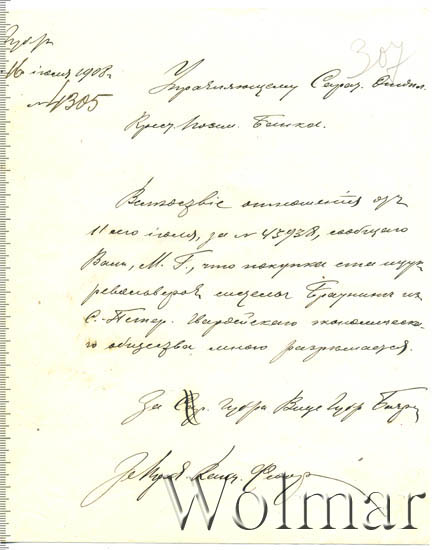 Губр
16 июля 1908 г
№ 4305
307
Управляющему Сарат. Отдѣл.
Крест. Позем. Банка.
Вслѣдствіе отношенія отъ
11 сего іюля, за № 45938, сообщаю
Вамъ, М. Г., что покупка ста штук
револьверовъ системы Браунинга из
С.-Петер. Гвардейскаго экономическа-
го общества мною разрѣшается.
За Губр Вице Губр
Wolmar